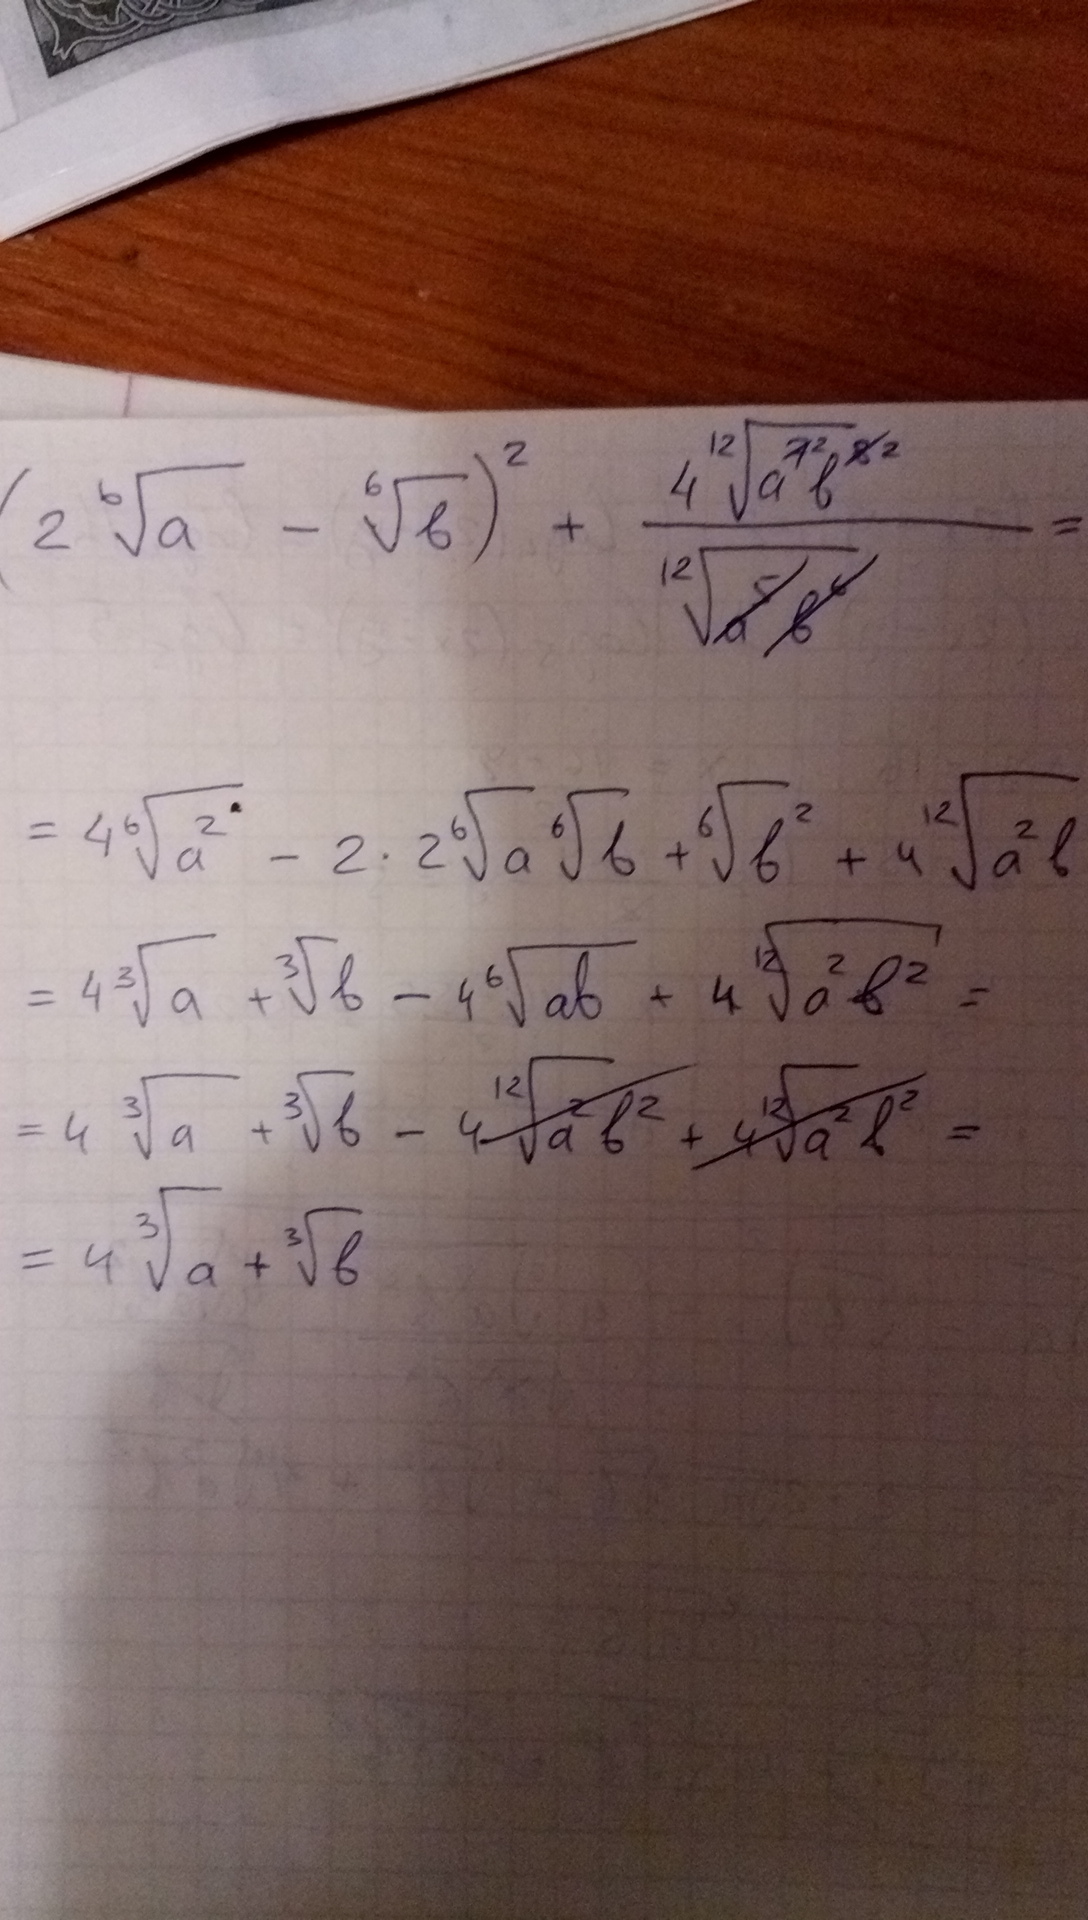 (2 ⁶√a − ⁶√b)² + (4 ¹²√(a⁷ ² b⁸ ²)) / (¹²√(a⁵ b⁶)) =
= 4 ⁶√(a²) − 2 · 2 ⁶√a ⁶√b + ⁶√b² + 4 ¹²√(a² b
= 4 ³√a + ³√b − 4 ⁶√(ab) + 4 ¹²√(a² b²) =
= 4 ³√a + ³√b − 4 ¹²√(a² b²) + 4 ¹²√(a² b²) =
= 4 ³√a + ³√b